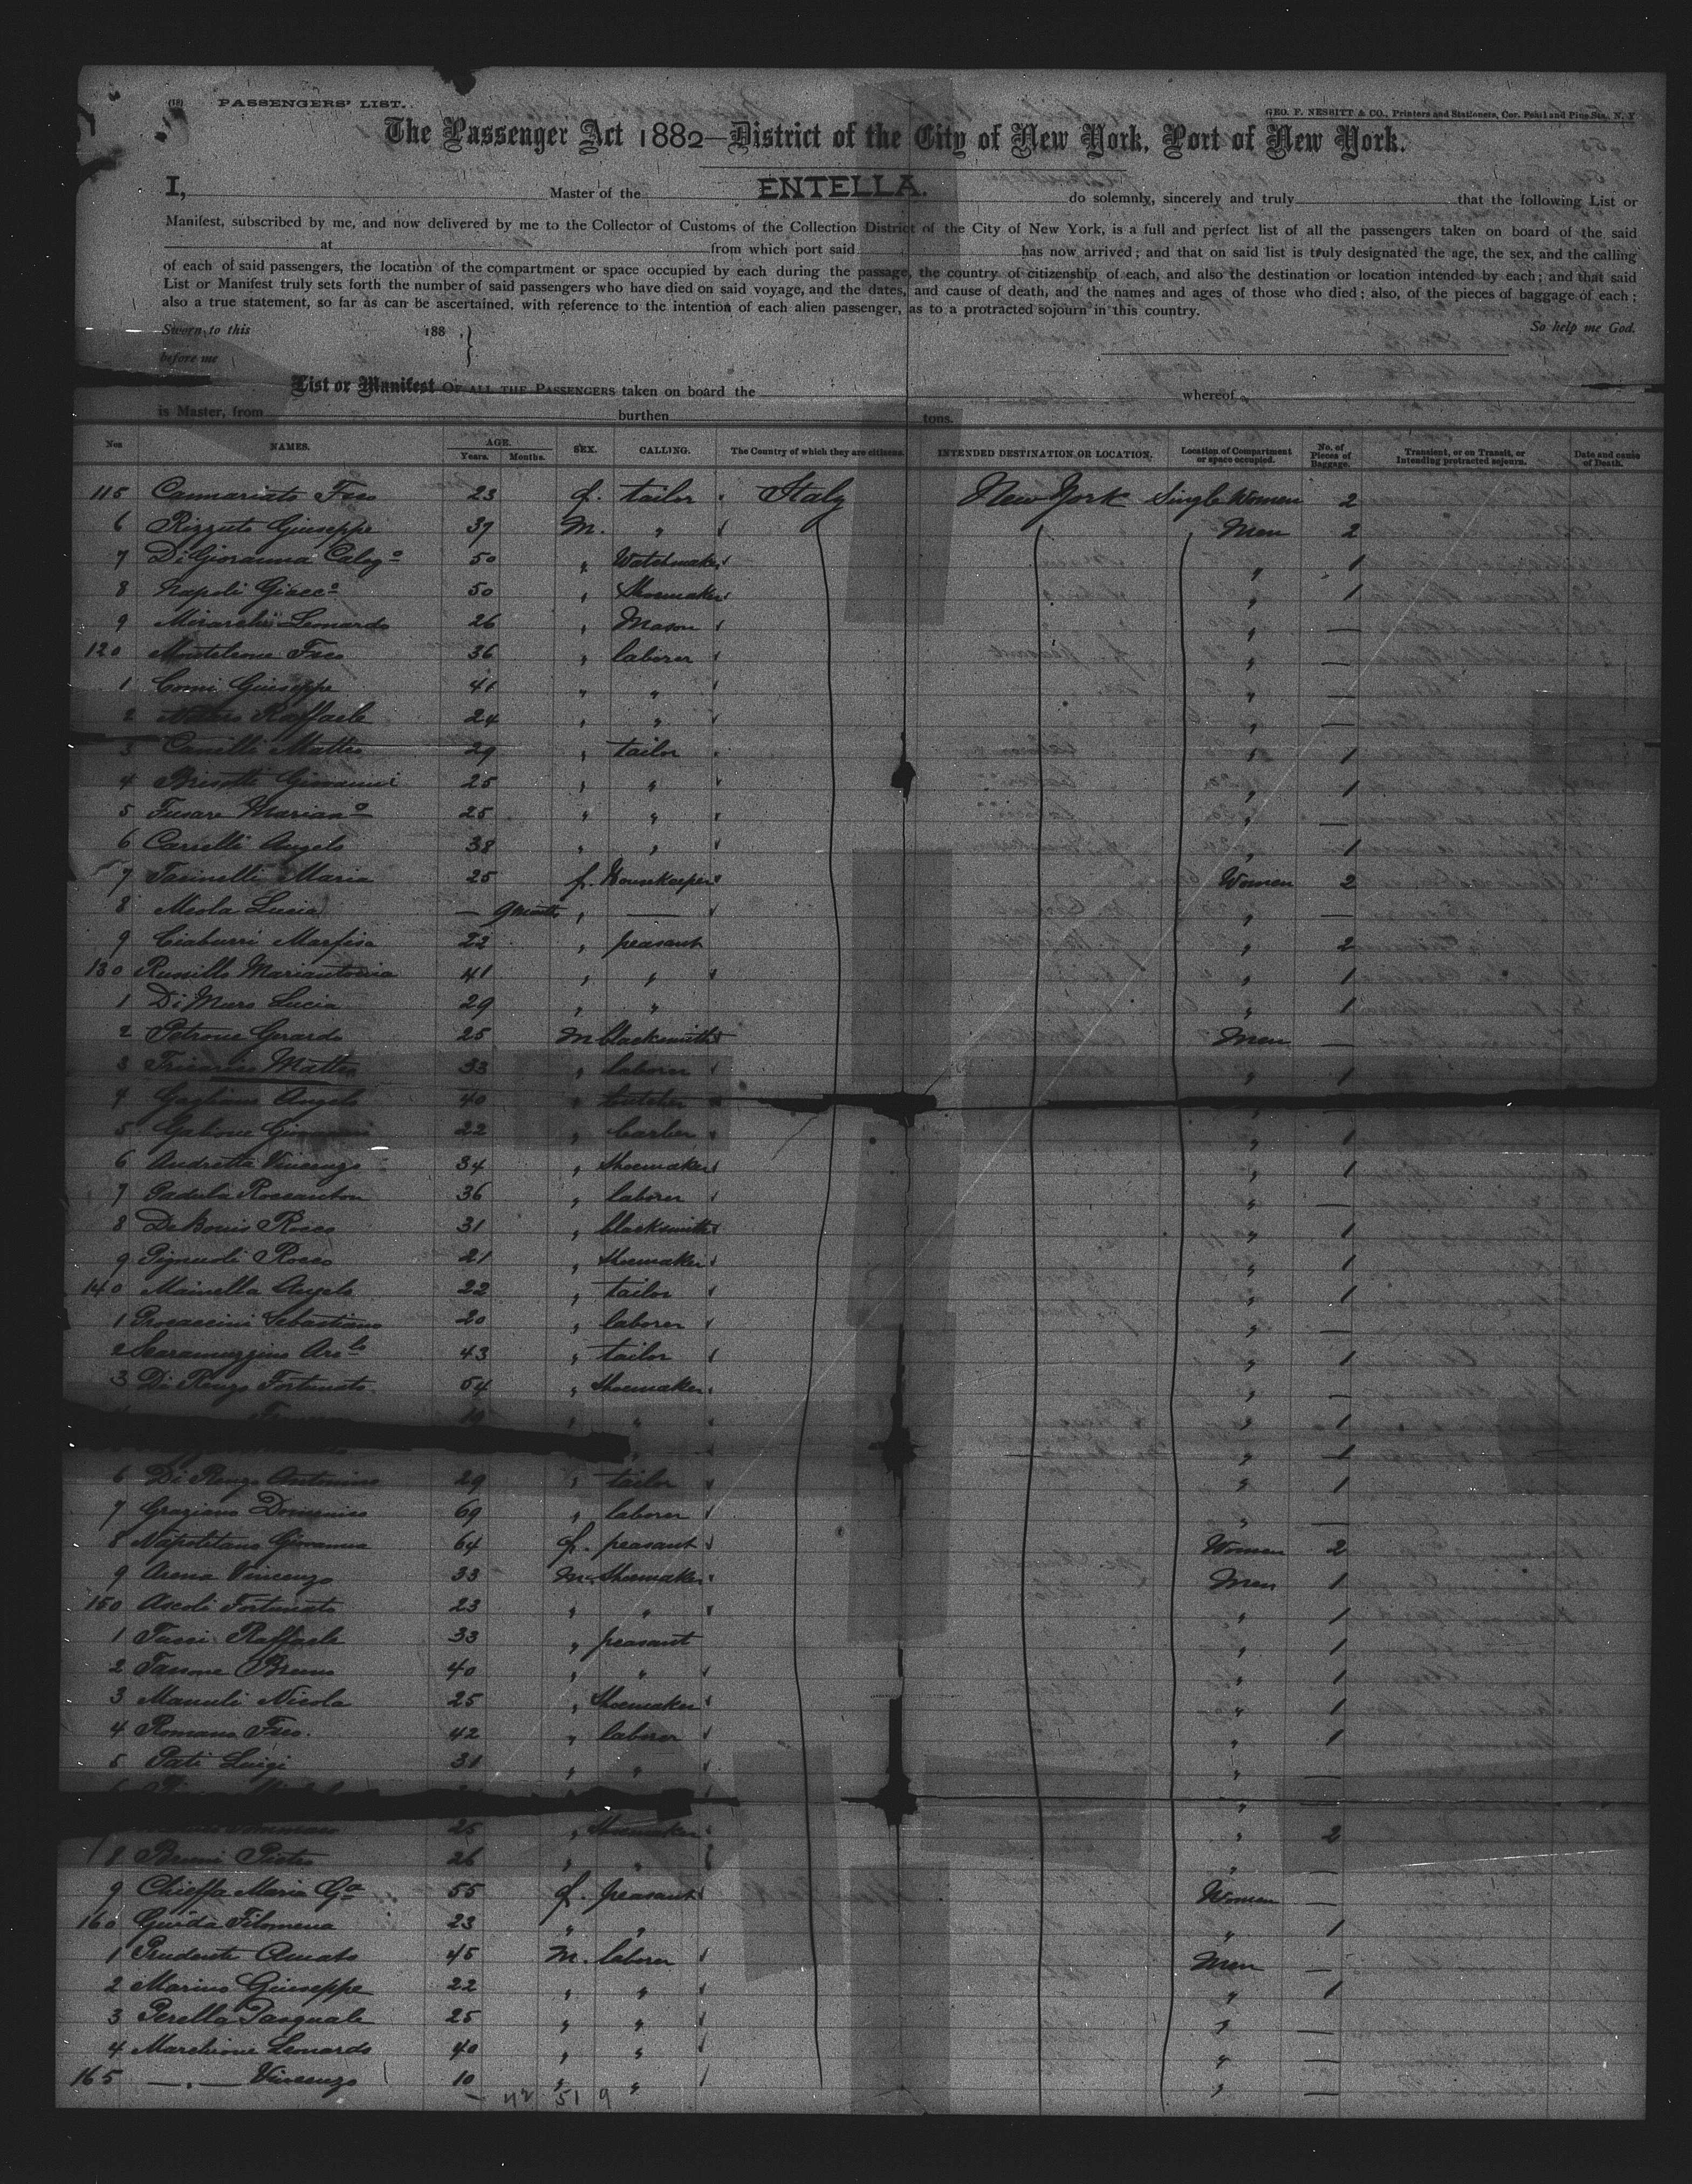 (18) PASSENGERS' LIST.
GEO. F. NESBITT & CO., Printers and Stationers, Cor. Pearl and Pine Sts., N. Y.
The Passenger Act 1882—District of the City of New York, Port of New York.
I, Master of the ENTELLA. do solemnly, sincerely and truly that the following List or
Manifest, subscribed by me, and now delivered by me to the Collector of Customs of the Collection District of the City of New York, is a full and perfect list of all the passengers taken on board of the said
at from which port said has now arrived; and that on said list is truly designated the age, the sex, and the calling
of each of said passengers, the location of the compartment or space occupied by each during the passage, the country of citizenship of each, and also the destination or location intended by each; and that said
List or Manifest truly sets forth the number of said passengers who have died on said voyage, and the dates, and cause of death, and the names and ages of those who died; also, of the pieces of baggage of each;
also a true statement, so far as can be ascertained, with reference to the intention of each alien passenger, as to a protracted sojourn in this country.
Sworn to this 188 } So help me God.
before me
List or Manifest OF ALL THE PASSENGERS taken on board the whereof
is Master, from burthen tons.
Nos NAMES. AGE. Years. Months. SEX. CALLING. The Country of which they are citizens. INTENDED DESTINATION OR LOCATION. Location of Compartment or space occupied. No. of Pieces of Baggage. Transient, or on Transit, or Intending protracted sojourn. Date and cause of Death.
115 Cannariato Fsco 23 f. tailor Italy New York Single Women 2
6 Rizzuto Giuseppe 37 M. " Men 2
7 Di Giovanna Calogo 50 " Watchmaker " 1
8 Napoli Giacco 50 " Shoemaker " 1
9 Leonardo 26 " Mason " —
120 Monteleone Fsco 36 " laborer " —
1 Comi Giuseppe 41 " " " —
2 Raffaele 24 " " " —
3 Canilli Matteo 29 " tailor " 1
4 Giovanni 25 " " " 1
5 Fusaro Mariano 25 " " " —
6 Angelo 38 " " " 1
7 Maria 25 f. Housekeeper Women 2
8 Meola Lucia — 9 months " — " —
9 Ciaburri Marfisa 22 " peasant " 2
130 Mariantonia 41 " " " 1
1 Di Muro Lucia 29 " " " 1
2 Petrone Gerardo 25 M blacksmith Men —
3 Matteo 33 " laborer " 1
4 Gagliano Angelo 40 " butcher " —
5 Giovanni 22 " barber " 1
6 Andretta Vincenzo 34 " Shoemaker " 1
7 Padula Roccanton 36 " laborer " —
8 De Bonis Rocco 31 " blacksmith " 1
9 Rocco 21 " Shoemaker " 1
140 Mainella Angelo 22 " tailor " 1
1 Procaccini Sebastiano 20 " laborer " —
2 Scaramuzzino 43 " tailor " 1
3 Di Renzo Fortunato 54 " Shoemaker " —
19 " " " 1
" " 1
6 Di Renzo Antonino 29 " tailor " 1
7 Graziano Domenico 69 " laborer " —
8 Napolitano Giovanna 64 f. peasant Women 2
9 Arena Vincenzo 33 M. Shoemaker Men 1
150 Ascoli Fortunato 23 " " " 1
1 Tucci Raffaele 33 " peasant " 1
2 Tassone Bruno 40 " " " 1
3 Manuli Nicola 25 " Shoemaker " 1
4 Romano Fsco. 42 " laborer " 1
5 Pati Luigi 31 " " " —
" —
25 " Shoemaker " 2
8 Bruni Pietro 26 " " " —
9 Chieffa Maria Ga 55 f. peasant Women —
160 Guida Filomena 23 " " " 1
1 Prudente Amato 45 M. laborer Men —
2 Marino Giuseppe 22 " " " 1
3 Perella Pasquale 25 " " " —
4 Marchione Leonardo 40 " " " —
165 — " — Vincenzo 10 " " " —
42 51 9